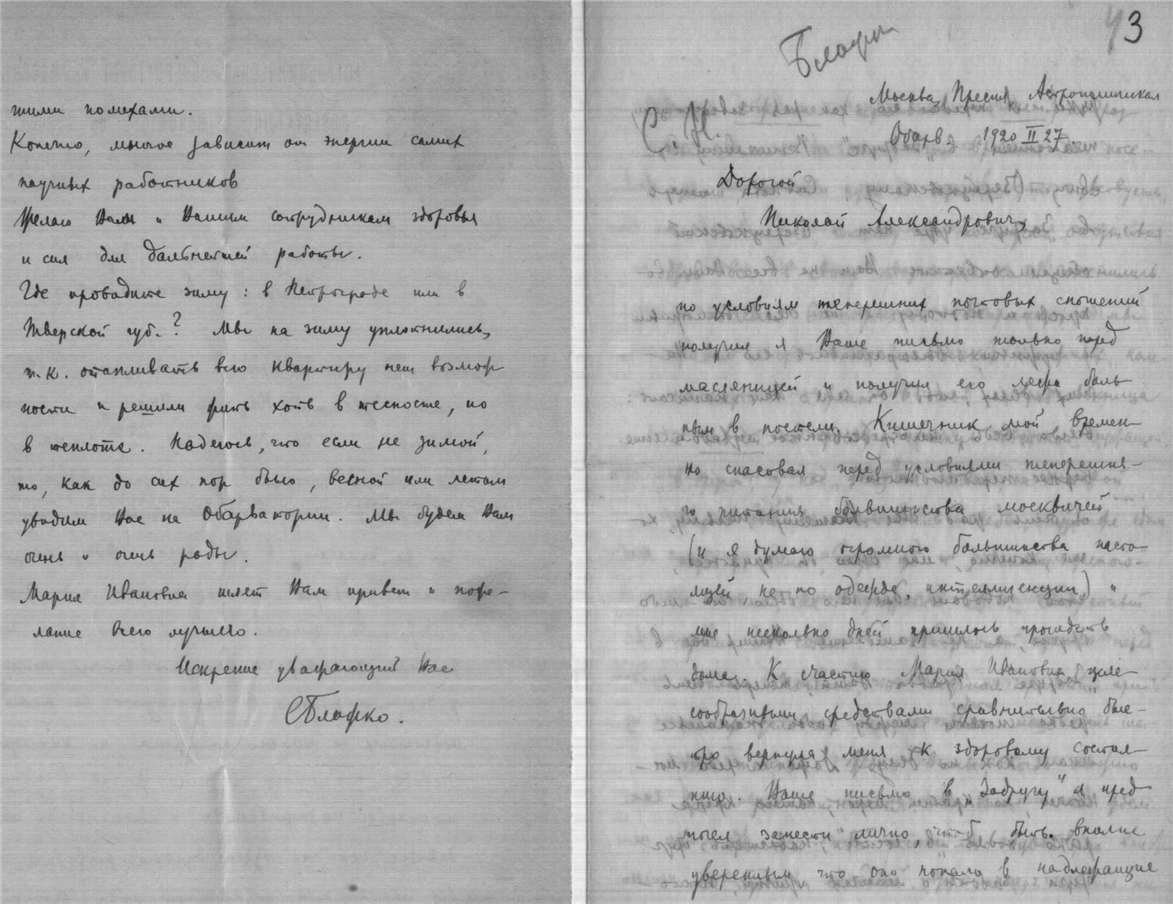 шими помехами.
Конечно, многое зависит от энергии самих
научных работников
Желаю Вам и Вашим сотрудникам здоровья
и сил для дальнейшей работы.
Где проводите зиму: в Петрограде или в
Тверской губ.? Мы на зиму уплотнились,
т.к. отапливать всю квартиру нет возмож
ности и решили жить хоть в тесноте, но
в теплоте. Надеюсь, что если не зимой,
то, как до сих пор было, весной или летом
увидим Вас на Обсерватории. Мы будем Вам
очень и очень рады.
Мария Ивановна шлет Вам привет и поже-
лание всего лучшего.
Искренне уважающий Вас
СБлажко.
43
Блажко
Москва, Пресня, Астрономическая
Обсерв. 1920 II 27.
С. Н.
Дорогой
Николай Александрович,
по условиям теперешних почтовых сношений
получил я Ваше письмо только перед
масленицей и получил его лежа боль
ным в постели. Кишечник мой времен-
но спасовал перед условиями теперешня-
го питания большинства москвичей
(и я думаю огромного большинства насто
ящей, не по одежде, интеллигенции) и
мне несколько дней пришлось просидеть
дома. К счастию Мария Ивановна целе-
сообразными средствами сравнительно быс-
тро вернула меня к здоровому состоя-
нию. Ваше письмо в „Задругу" я пред
почел занести лично, чтоб быть вполне
уверенным что оно попало в надлежащие